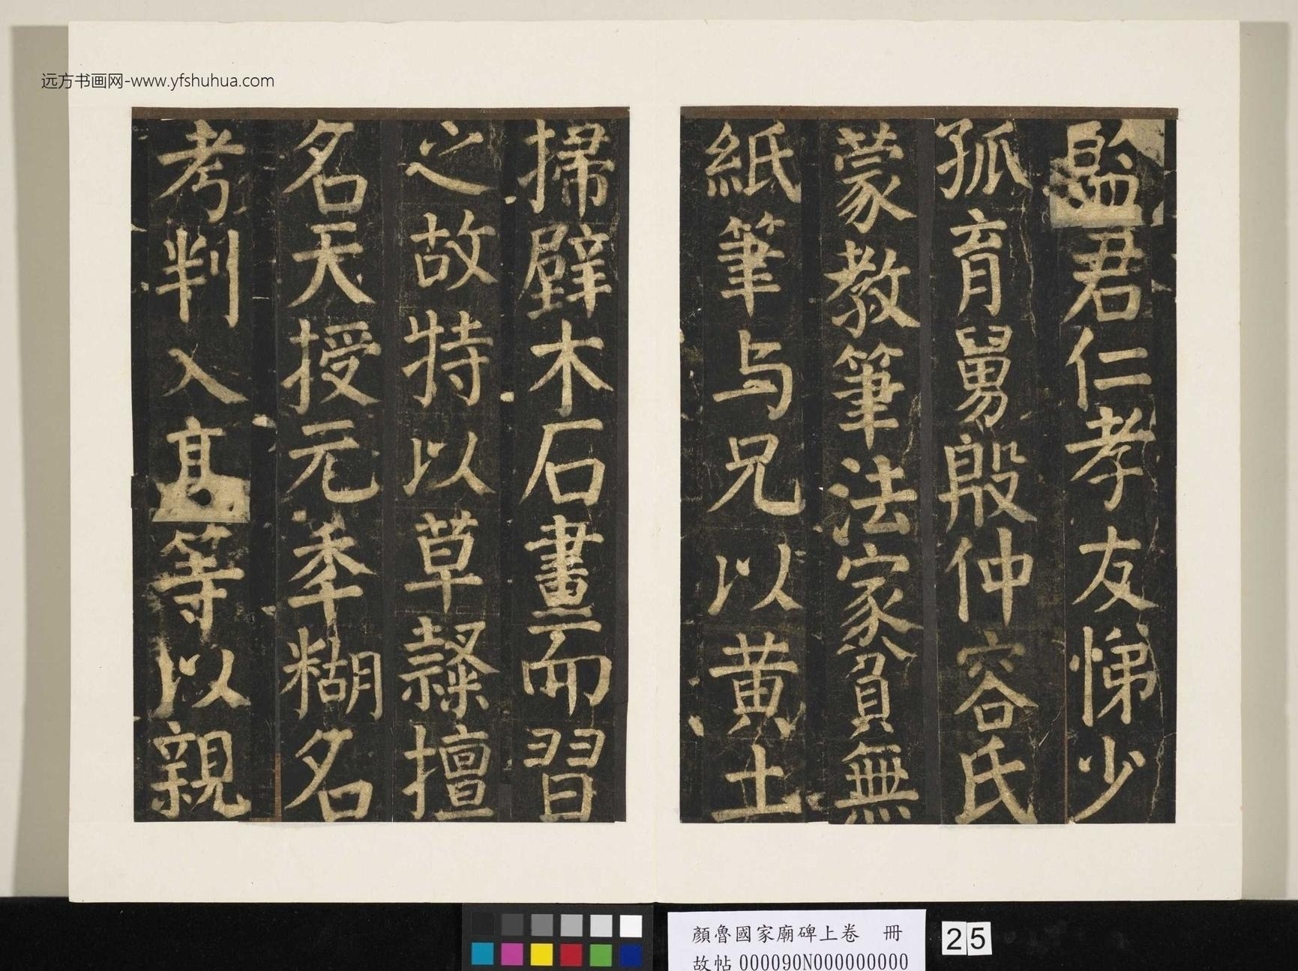 远方书画网-www.yfshuhua.com
監君仁孝友悌少
孤育舅殷仲容氏
蒙教筆法家貧無
紙筆与兄以黄土
掃壁木石畫而習
之故特以草隸擅
名天授元年糊名
考判入髙等以親
顏魯國家廟碑上卷 冊
故帖000090N000000000
25